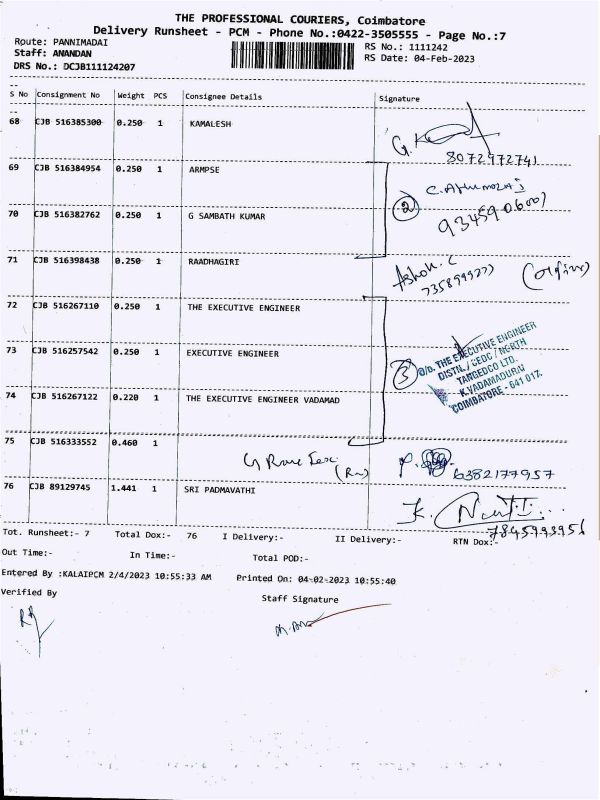 THE PROFESSIONAL COURIERS, Coimbatore
Delivery Runsheet - PCM - Phone No.:0422-3505555 - Page No.:7
Route: PANNIMADAI
RS No.: 1111242
Staff: ANANDAN
RS Date: 04-Feb-2023
DRS No.: DCJB111124207
S No Consignment No Weight PCS Consignee Details Signature
68 CJB 516385300 0.250 1 KAMALESH
8072972741
69 CJB 516384954 0.250 1 ARMPSE
2
70 CJB 516382762 0.250 1 G SAMBATH KUMAR
71 CJB 516398438 0.250 1 RAADHAGIRI
Ashok. C
7358999277
72 CJB 516267110 0.250 1 THE EXECUTIVE ENGINEER
73 CJB 516257542 0.250 1 EXECUTIVE ENGINEER
3
O/o. THE EXECUTIVE ENGINEER
DISTN. / CEDC / NORTH
TANGEDCO LTD.
K.VADAMADURAI
COIMBATORE - 641 017.
74 CJB 516267122 0.220 1 THE EXECUTIVE ENGINEER VADAMAD
75 CJB 516333552 0.460 1
6382177957
76 CJB 89129745 1.441 1 SRI PADMAVATHI
7845993956
Tot. Runsheet:- 7 Total Dox:- 76 I Delivery:- II Delivery:- RTN Dox:-
Out Time:- In Time:- Total POD:-
Entered By :KALAIPCM 2/4/2023 10:55:33 AM Printed On: 04-02-2023 10:55:40
Verified By Staff Signature